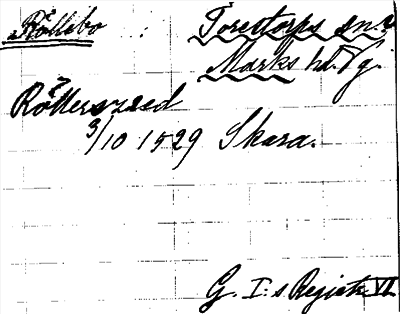 Röllebo : Torestorps sn.
Marks hd. Vg.
Röttersred
3/10 1529 Skara.
G. I:s Registr. VI